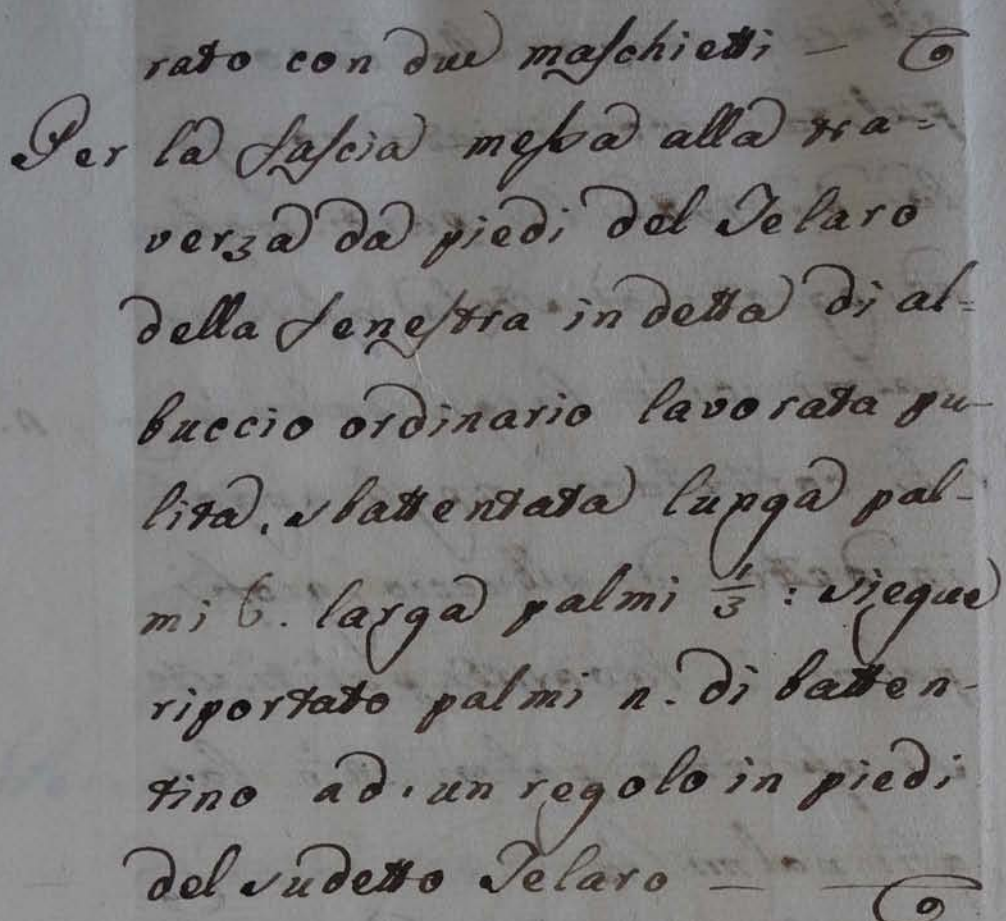 rato con due maschietti —
Per la fascia messa alla tra=
verza da piedi del Telaro
della fenestra in detta di al=
buccio ordinario lavorata pu-
lita, sbattentata lunga pal-
mi 6. larga palmi 1/3 : siegue
riportato palmi n. di batten-
tino ad un regolo in piedi
del sudetto Telaro —